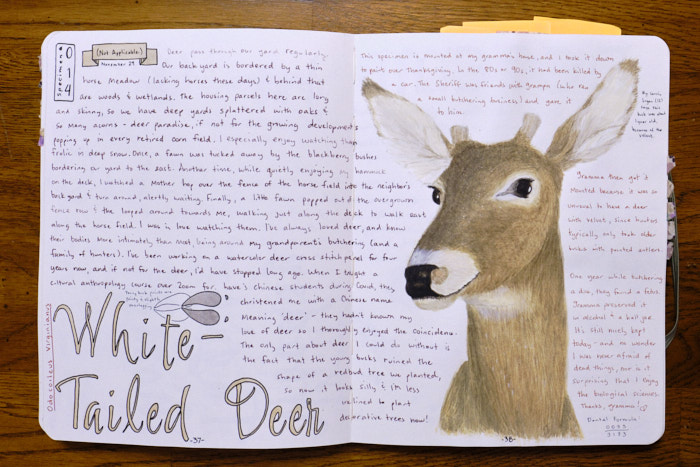 SPECIMEN
014
(Not Applicable)
November 29
Deer pass through our yard regularly.
Our backyard is bordered by a thin
horse meadow (lacking horses these days) & behind that
are woods & wetlands. The housing parcels here are long
and skinny, so we have deep yards splattered with oaks &
so many acorns - deer paradise, if not for the growing developments
popping up in every retired corn field. I especially enjoy watching them
frolic in deep snow. Once, a fawn was tucked away by the blackberry bushes
bordering our yard to the east. Another time, while quietly enjoying my hammock
on the deck, I watched a mother hop over the fence of the horse field into the neighbor's
back yard & turn around, alertly waiting. Finally, a little fawn popped out of the overgrown
fence row & the looped around towards me, walking just along the deck to walk east
along the horse field. I was in love watching them. I've always loved deer, and know
their bodies more intimately than most, being around my grandparent's butchering (and a
family of hunters). I've been working on a watercolor deer cross stitch panel for four
years now, and if not for the deer, I'd have stopped long ago. When I taught a
cultural anthropology course over Zoom for
Chinese students during Covid, they
christened me with a Chinese name
meaning 'deer' - they hadn't known my
love of deer so I thoroughly enjoyed the coincidence.
The only part about deer I could do without is
the fact that the young bucks ruined the
shape of a redbud tree we planted,
so now it looks silly & I'm less
inclined to plant
decorative trees now!
Odocoileus Virginianus
White-
Tailed Deer
-37-
This specimen is mounted at my gramma's house, and I made it down
to paint over Thanksgiving. In the 80s or 90s, it had been killed by
a car. The Sheriff was friends with grampa (who ran
a small butchering business) and gave it
to him.
Gramma then got it
mounted because it was so
unusual to have a deer
with velvet, since hunters
typically only took older
bucks with pointed antlers.
One year while butchering
a doe, they found a fetus.
Gramma preserved it
in alcohol & a ball jar.
It's still nicely kept
today - and no wonder
I was never afraid of
dead things, nor is it
surprising that I enjoy
the biological sciences.
Thanks, gramma!
Dental Formula:
0033
3133
-38-